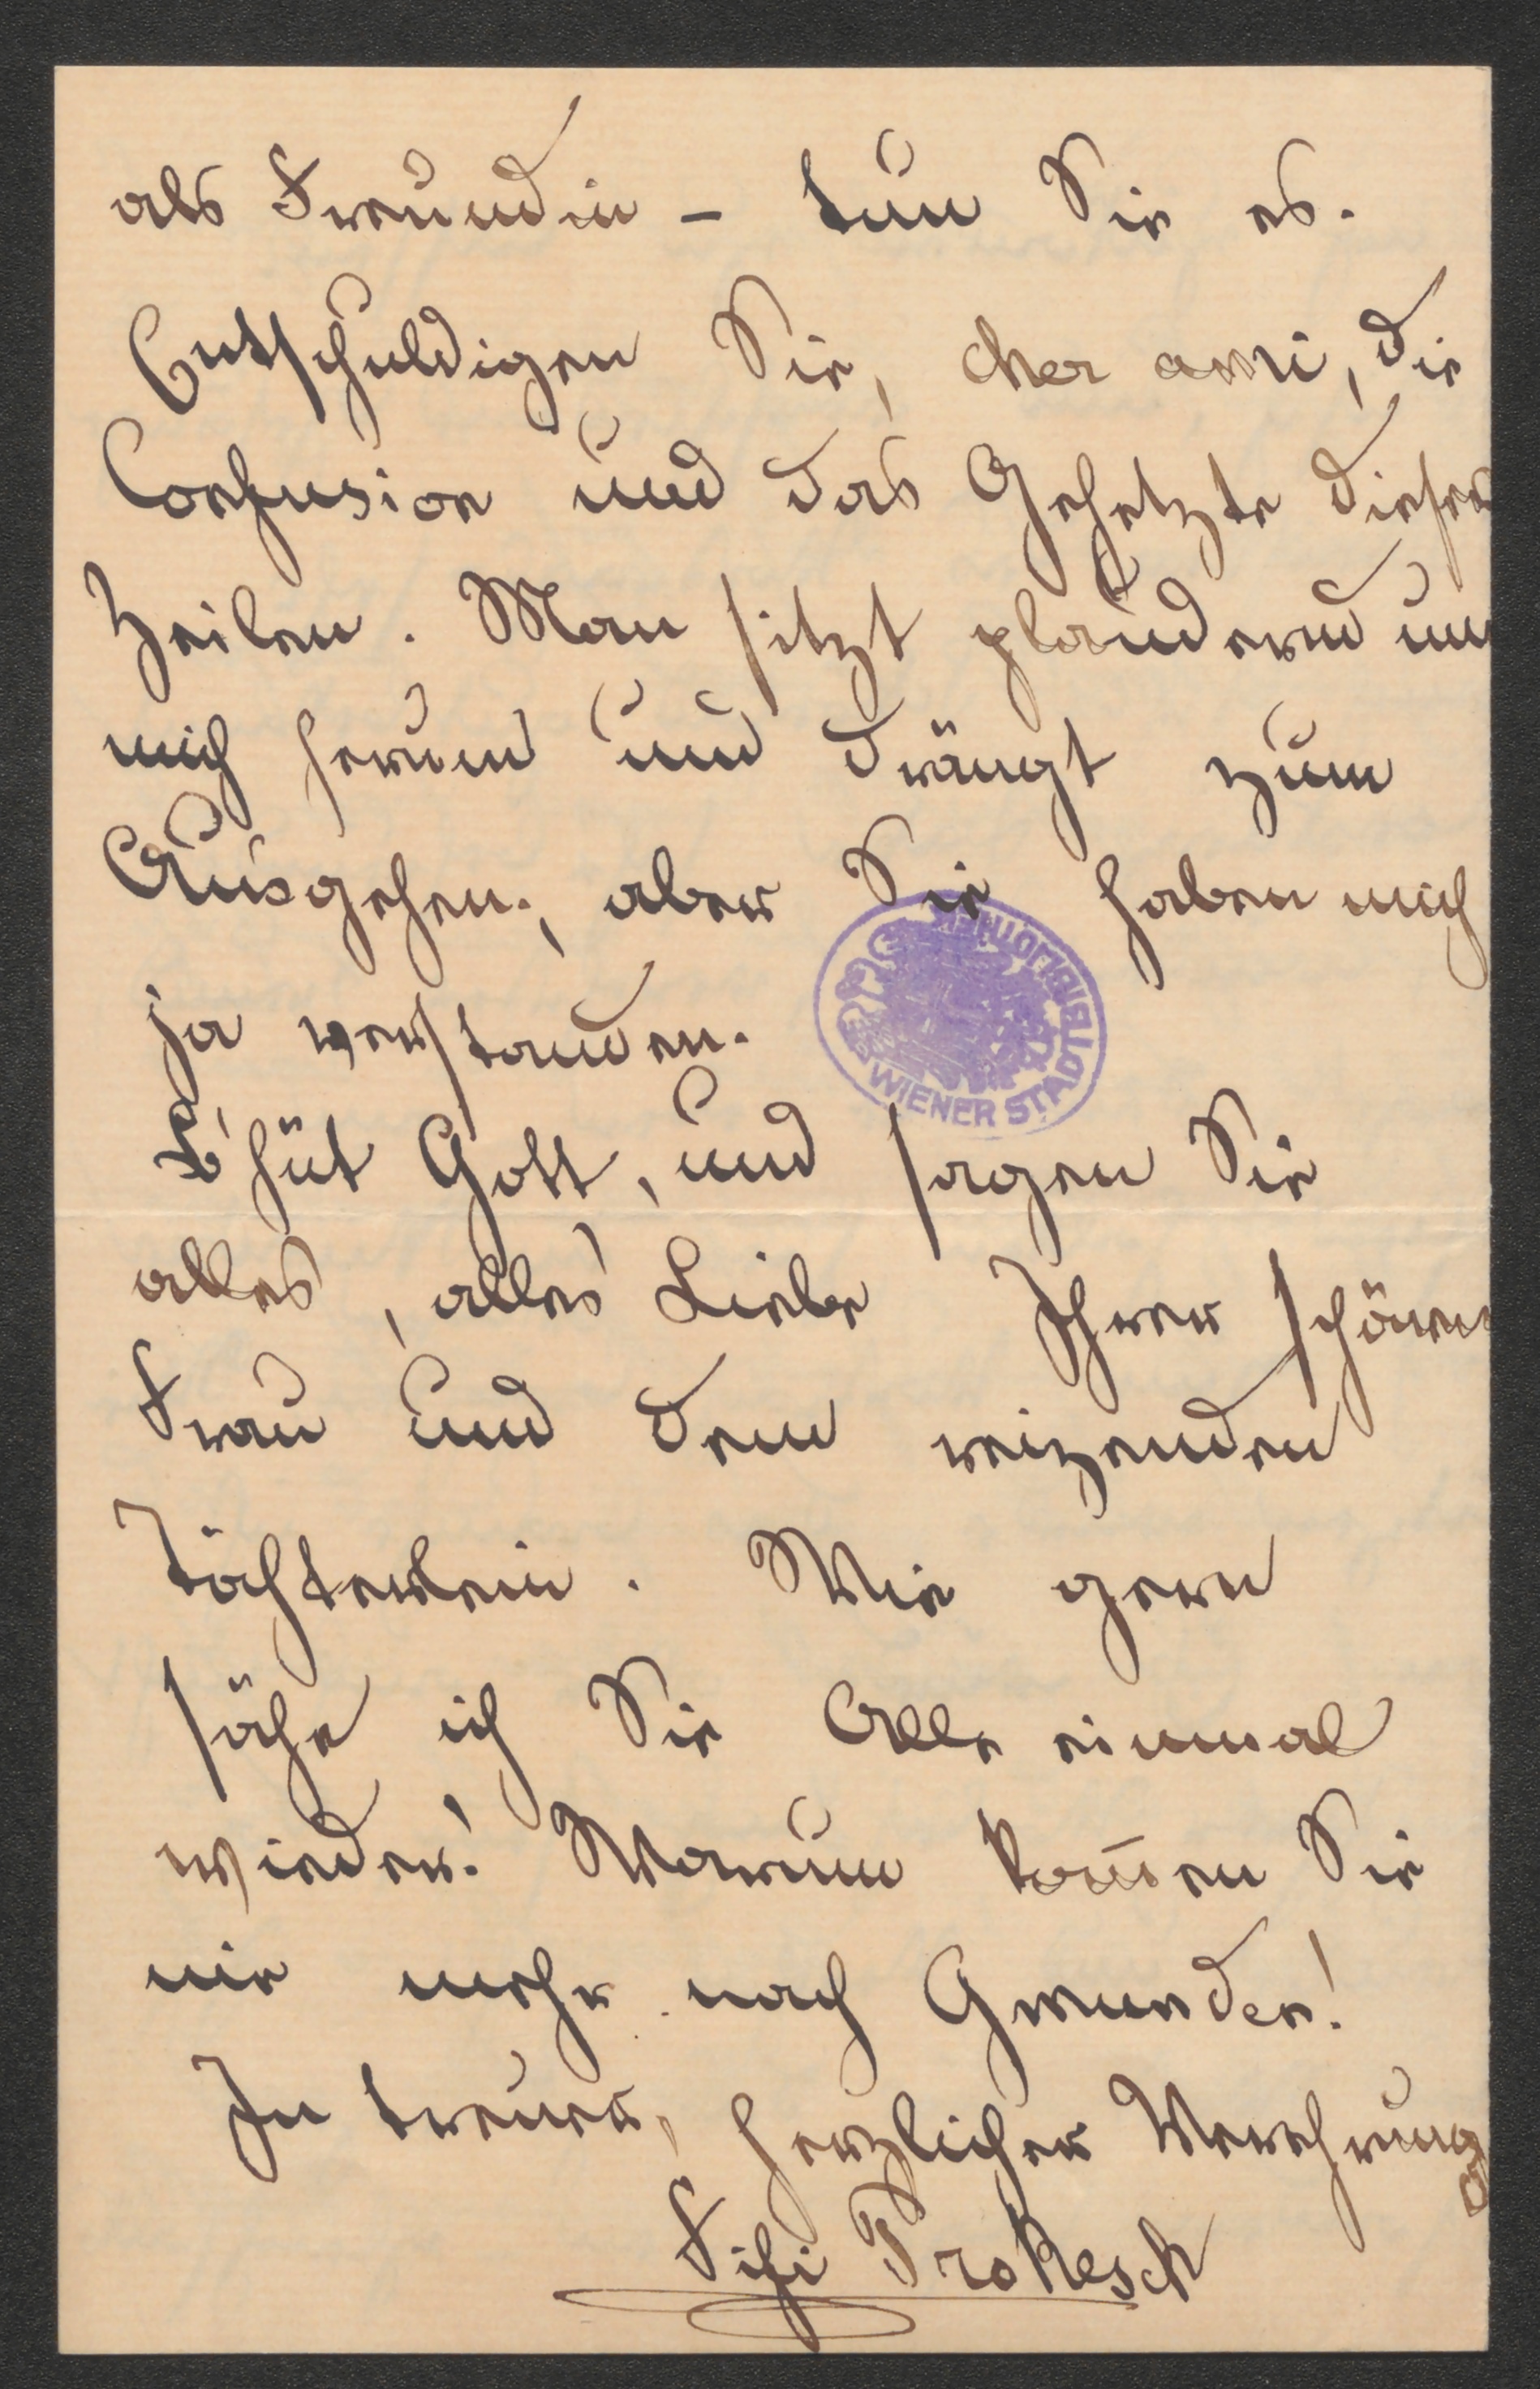 als Freundin – tun Sie es.
Entschuldigen Sie, cher ami, die
Confusion und das Gehetzte dieser
Zeilen. Man sitzt plaudernd um
mich herum und drängt zum
Ausgehen; aber Sie haben mich
ja verstanden.
B'hüt Gott, und sagen Sie
alles, alles Liebe Ihrer schönen
Frau und dem reizenden
Töchterlein. Wie gern
sähe ich Sie Alle einmal
wieder! Warum kom̄en Sie
nie mehr nach Gmunden!
In treuer, herzlicher Verehrung
Fifi Prokesch
WIENER STADTBIBLIOTHEK